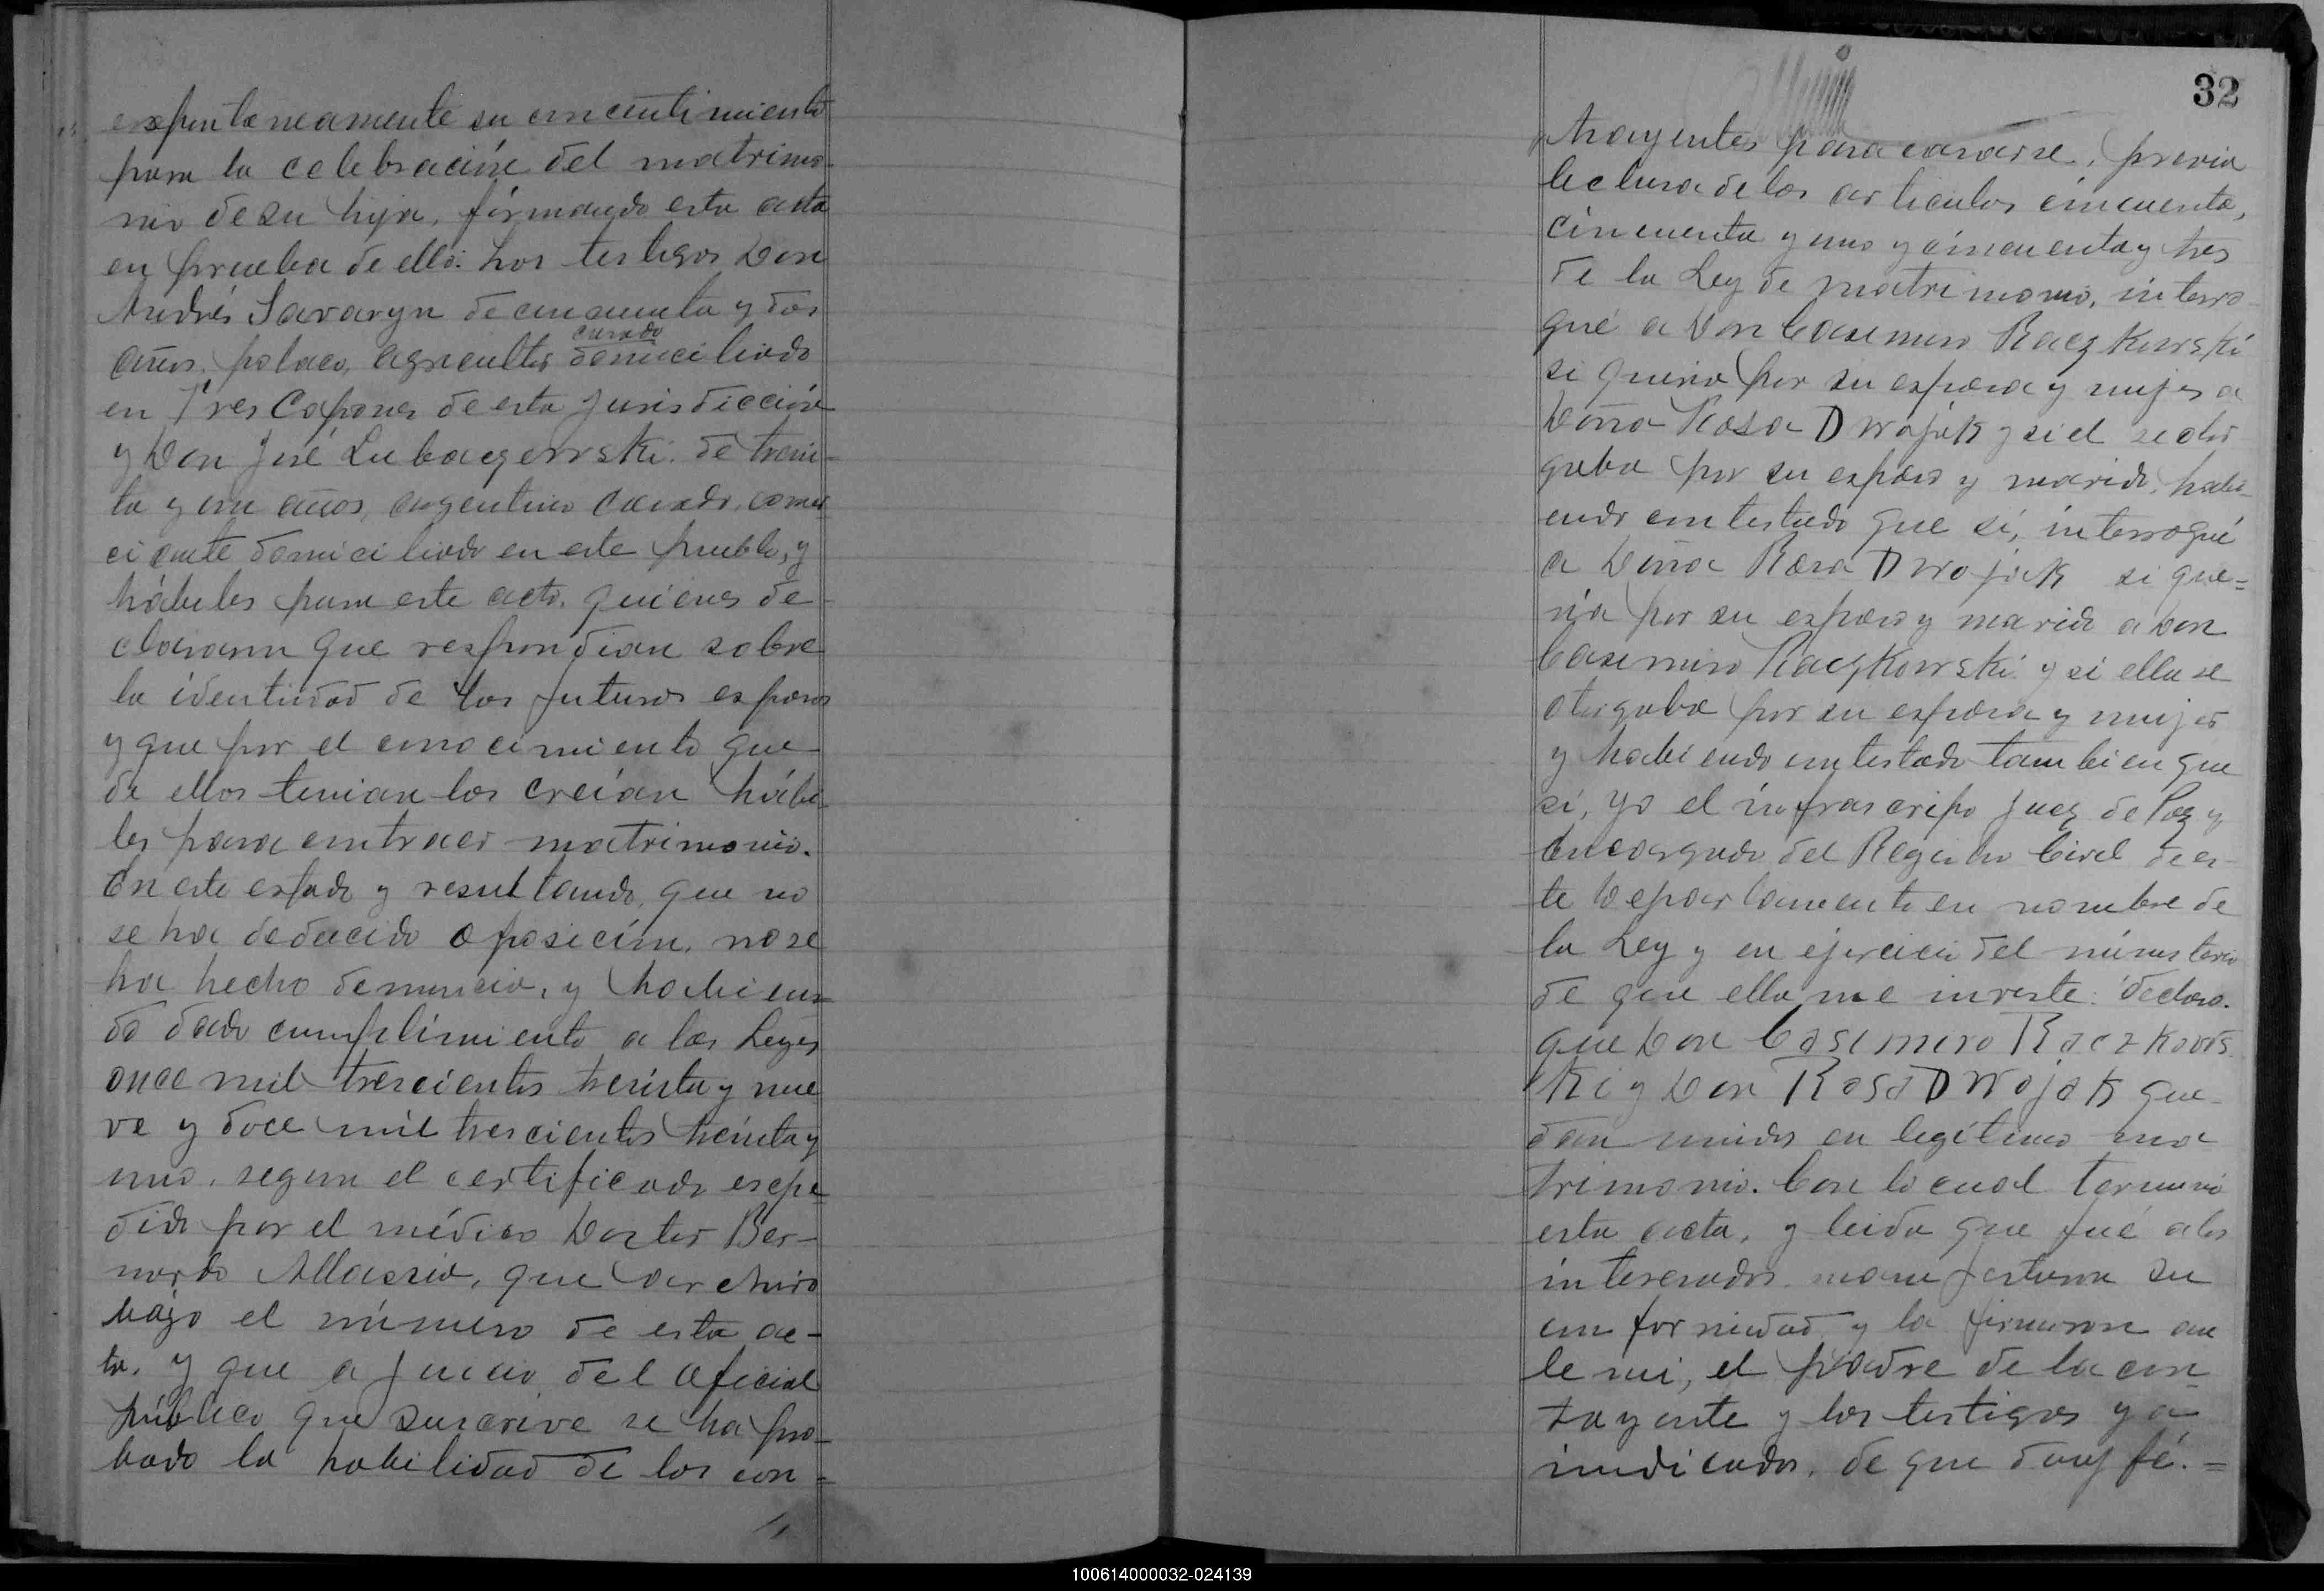 expontaneamente su concentimiento
para la celebración del matrimo-
nio de su hija, firmando esta acta
en prueba de ello. Los testigos Don
Andrés Savaryn de cincuenta y dos
casado
años, polaco, agricultor domiciliado
en Tres Capones de esta jurisdicción
y Don José Lubaczewski de trein-
ta y un años, argentino casado, comer
ciante domiciliado en este pueblo, y
hábiles para este acto, quienes de-
claran que respondian sobre
la identidad de los futuros esposos
y que por el conocimiento que
de ellos tenian los creían hábi-
les para contraer matrimonio.
En este estado y resultando, que no
se ha deducido oposición, no se
ha hecho denuncia, y habien-
do dado cumplimiento a las Leyes
once mil trescientos treinta y nue
ve y doce mil trescientos treinta y
uno, segun el certificado espe-
dido por el médico Doctor Ber-
nardo Allasia, que archivo
bajo el número de esta ac-
ta, y que a juicio del oficial
público que suscrive se ha pro-
bado la habilidad de los con-
32
trayentes para casarse, previa
lectura de los articulos cincuenta,
cincuenta y uno y cincuenta y tres
de la Ley de matrimonio, interro-
gué a Don Casimiro Raczkowski
si queria por su esposa y mujer a
Doña Rosa Dwojak y si el se otor
gaba por su esposo y marido, habi-
endo contestado que sí, interrogué
a Doña Rosa Dwojak si que=
ria por su esposo y marido a Don
Casimiro Raczkowski y si ella se
otorgaba por su esposa y mujer
y habiendo contestado tambien que
sí, yo el infrascripo Juez de Paz y
Encargado del Registro Civil de es-
te Departamento en nombre de
la Ley y en ejercicio del ministerio
de que ella me inviste: declaro.
que Don Casimiro Raczkows-
ki y Don Rosa Dwojak que-
dan unidos en legítimo ma-
trimonio. Con lo cual terminó
esta acta, y leida que fué a los
interesados, manifestaron su
conformidad y la firmaron an
te mi, el padre de la con-
tayente y los testigos ya
indicados, de que doy fé.=
100614000032-024139